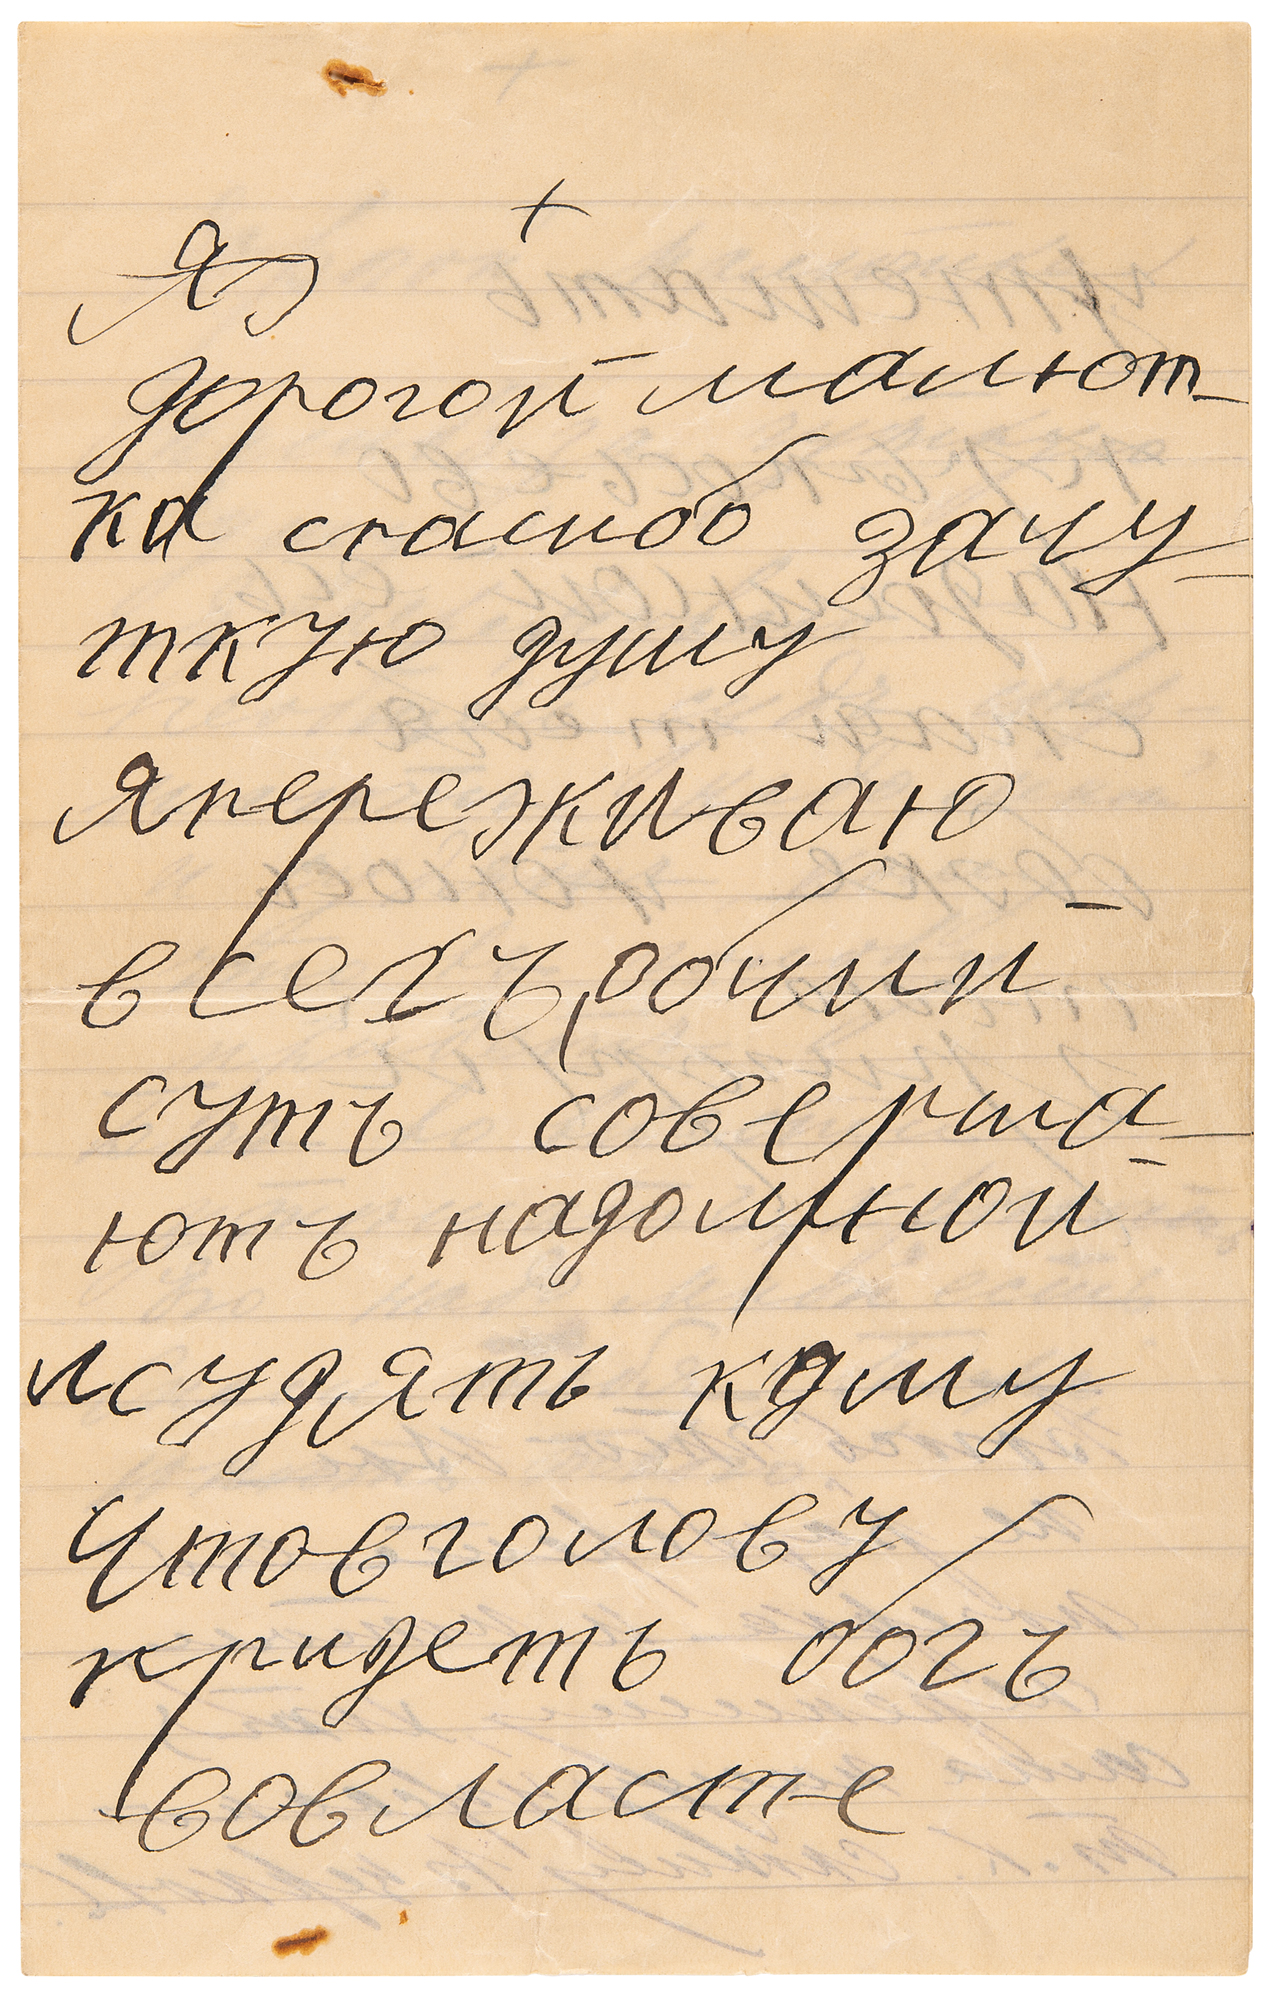 +
дорогой малют-
ка спасибо зачу-
ткую душу
япереживаю
всехъ, общий
суть соверша-
ютъ надомной
исудять кому
чтовголову
придеть богъ
вовласте